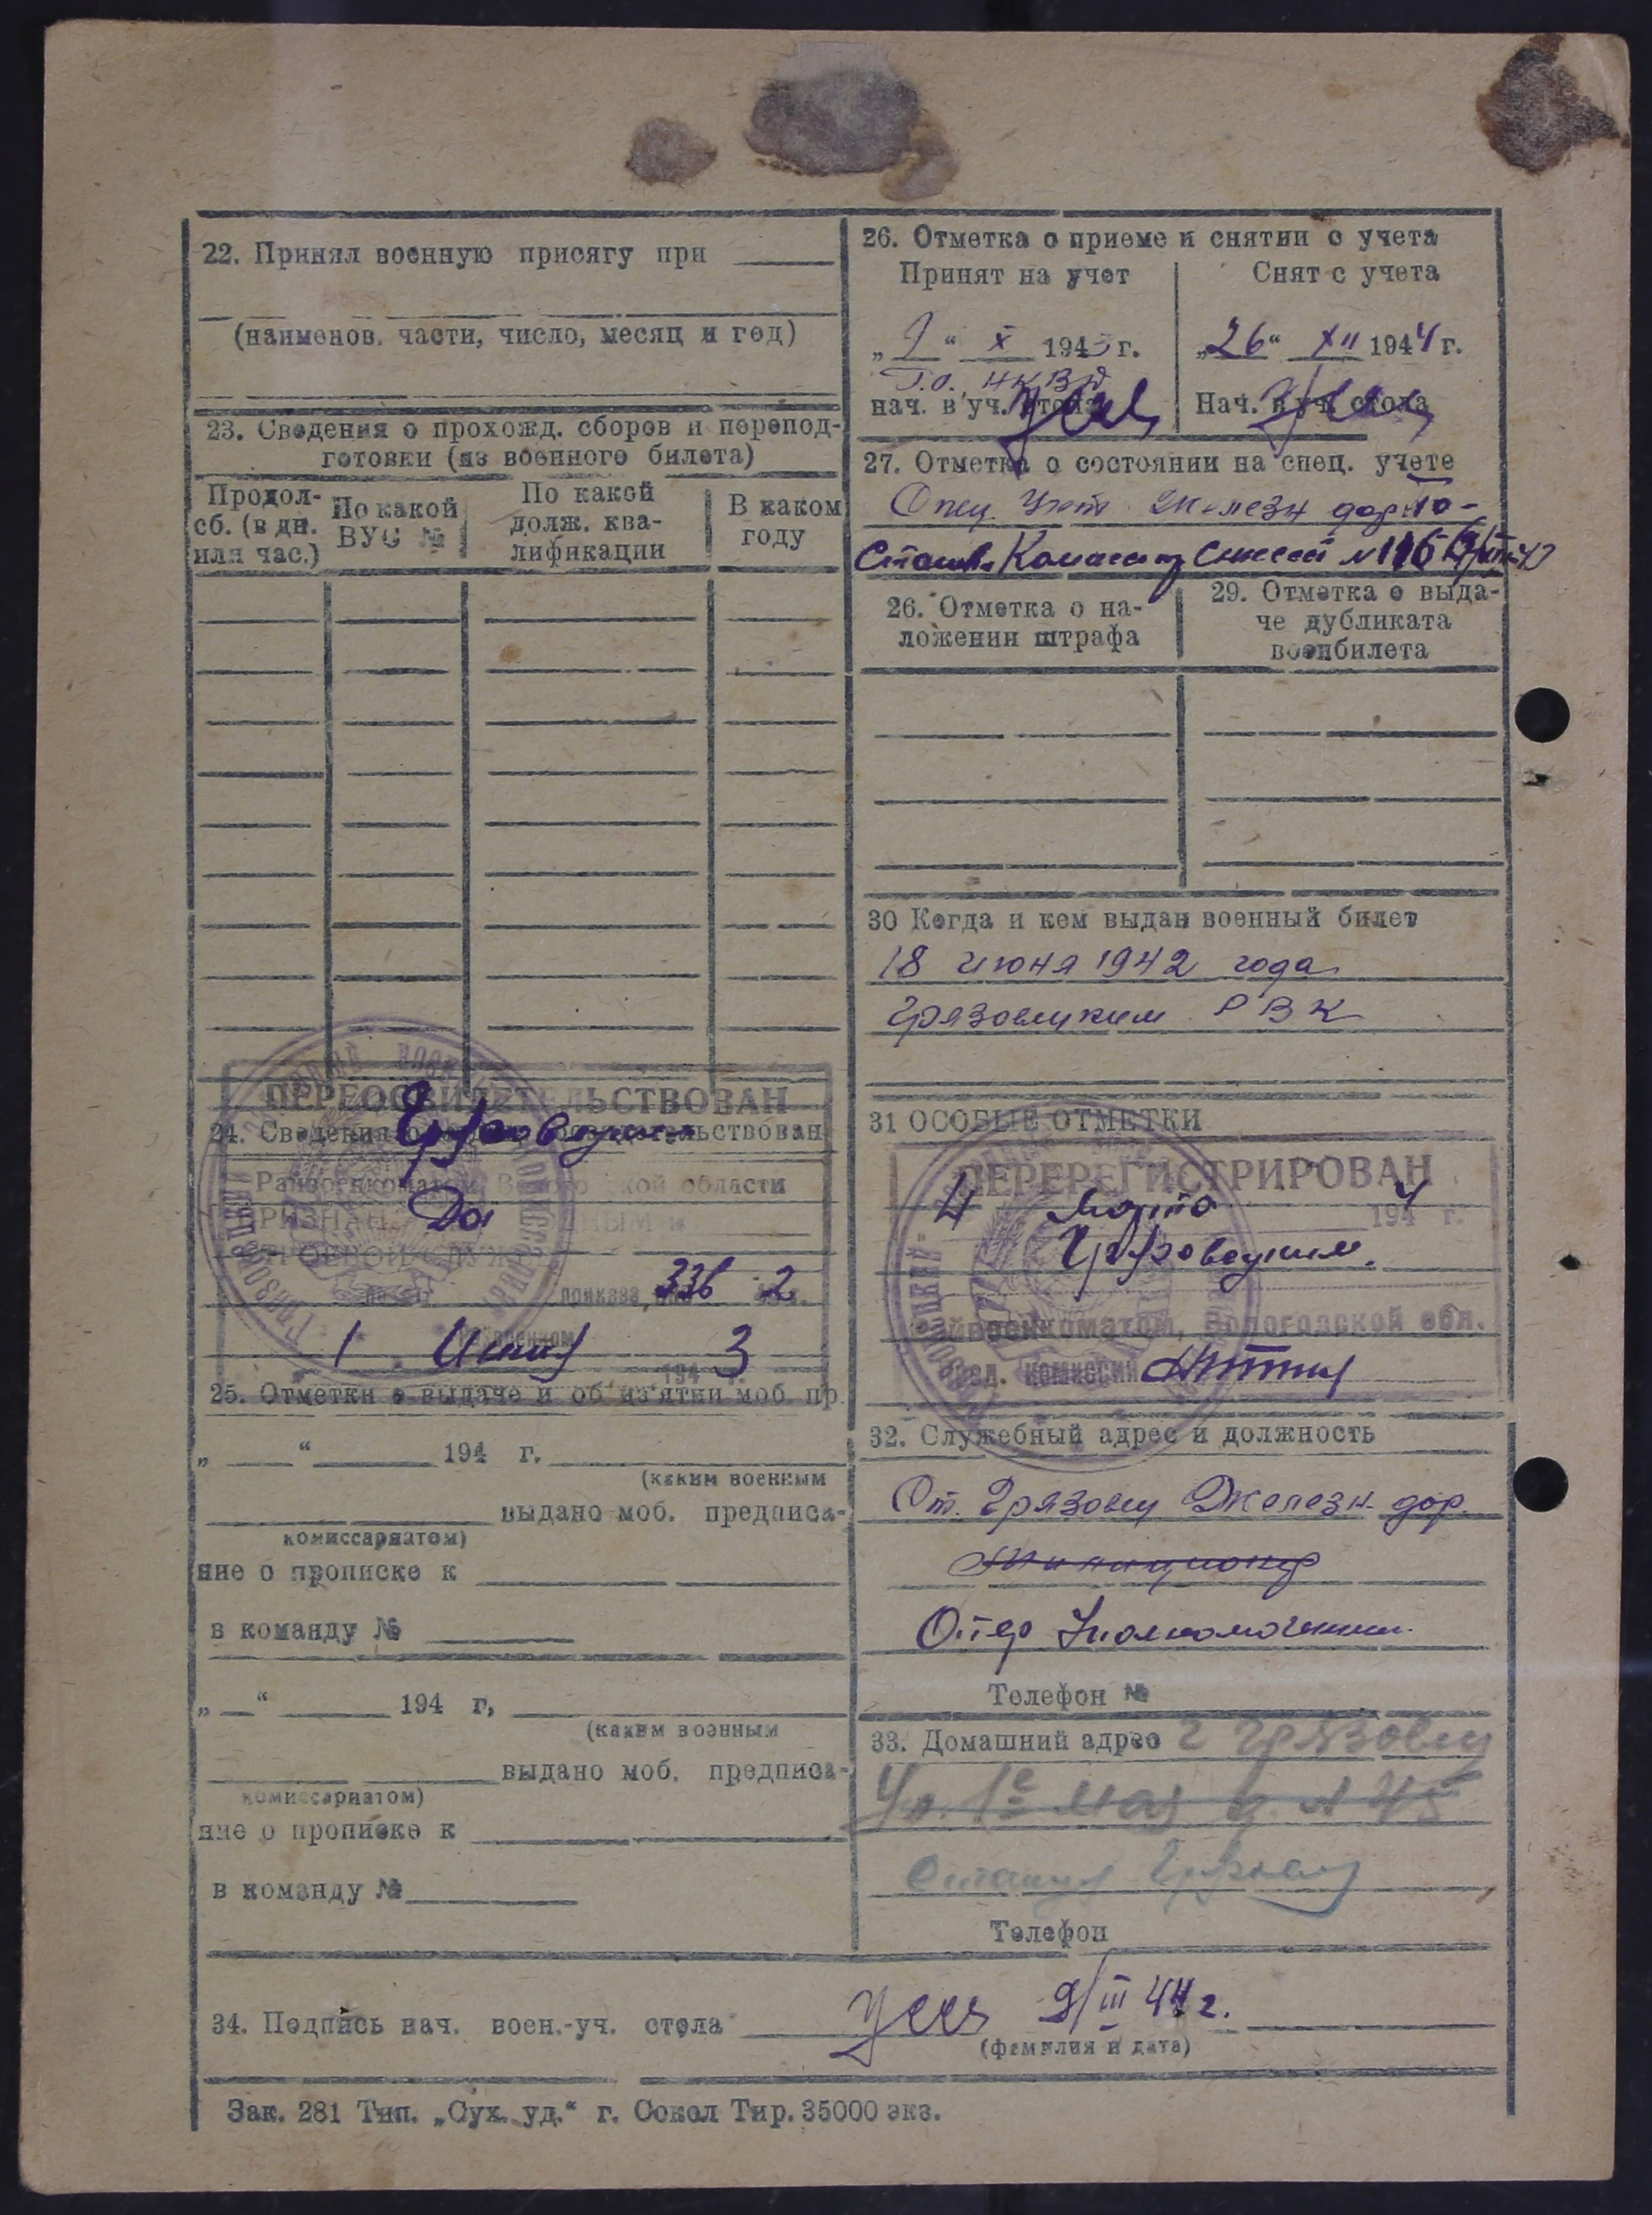 22. Принял военную присягу при
(наименов. части, число, месяц и год)
23. Сведения о прохожд. сборов и перепод-
готовки (из военного билета)
Продол-
сб. (в дн.
или час.)
По какой
ВУС №
По какой
долж. ква-
лификации
В каком
году
ПЕРЕОСВИДЕТЕЛЬСТВОВАН
24. Сведения
Райвоенкоматом Вологодской области
ПРИЗНАН
СТРОЕВОЙ СЛУЖБ
приказа 336 2
1 3
194 г.
25. Отметки о выдаче и об из'ятии моб. пр.
„ “ 194 г.
(каким военным
выдано моб. предписа-
комиссариатом)
ние о прописке к
в команду №
„ “ 194 г,
(каким военным
выдано моб. предписа-
комиссариатом)
ние о прописке к
в команду №
26. Отметка о приеме и снятии с учета
Принят на учет
„ “ X 1943 г.
Г.О. НКВД
нач. в уч. стола
Снят с учета
„26“ XII 1944 г.
Нач. в уч. стола
27. Отметка о состоянии на спец. учете
Спец. Учет Железн дор
26. Отметка о на-
ложении штрафа
29. Отметка о выда-
че дубликата
военбилета
30 Когда и кем выдан военный билет
18 июня 1942 года
Грязовецким РВК
31 ОСОБЫЕ ОТМЕТКИ
ПЕРЕРЕГИСТРИРОВАН
4 марта 1944 г.
Грязовецким
Райвоенкоматом, Вологодской обл.
Пред. комиссии
32. Служебный адрес и должность
Ст. Грязовец Железн. дор.
Милиционер
Опер Уполномоченный
Телефон №
33. Домашний адрес г Грязовец
Ул. 1е мая д. № 45
Станция Грязовец
Телефон
34. Подпись нач. воен.-уч. стола 9/III 44 г.
(фамилия и дата)
Зак. 281 Тип. „Сух. уд.“ г. Сокол Тир. 35000 экз.